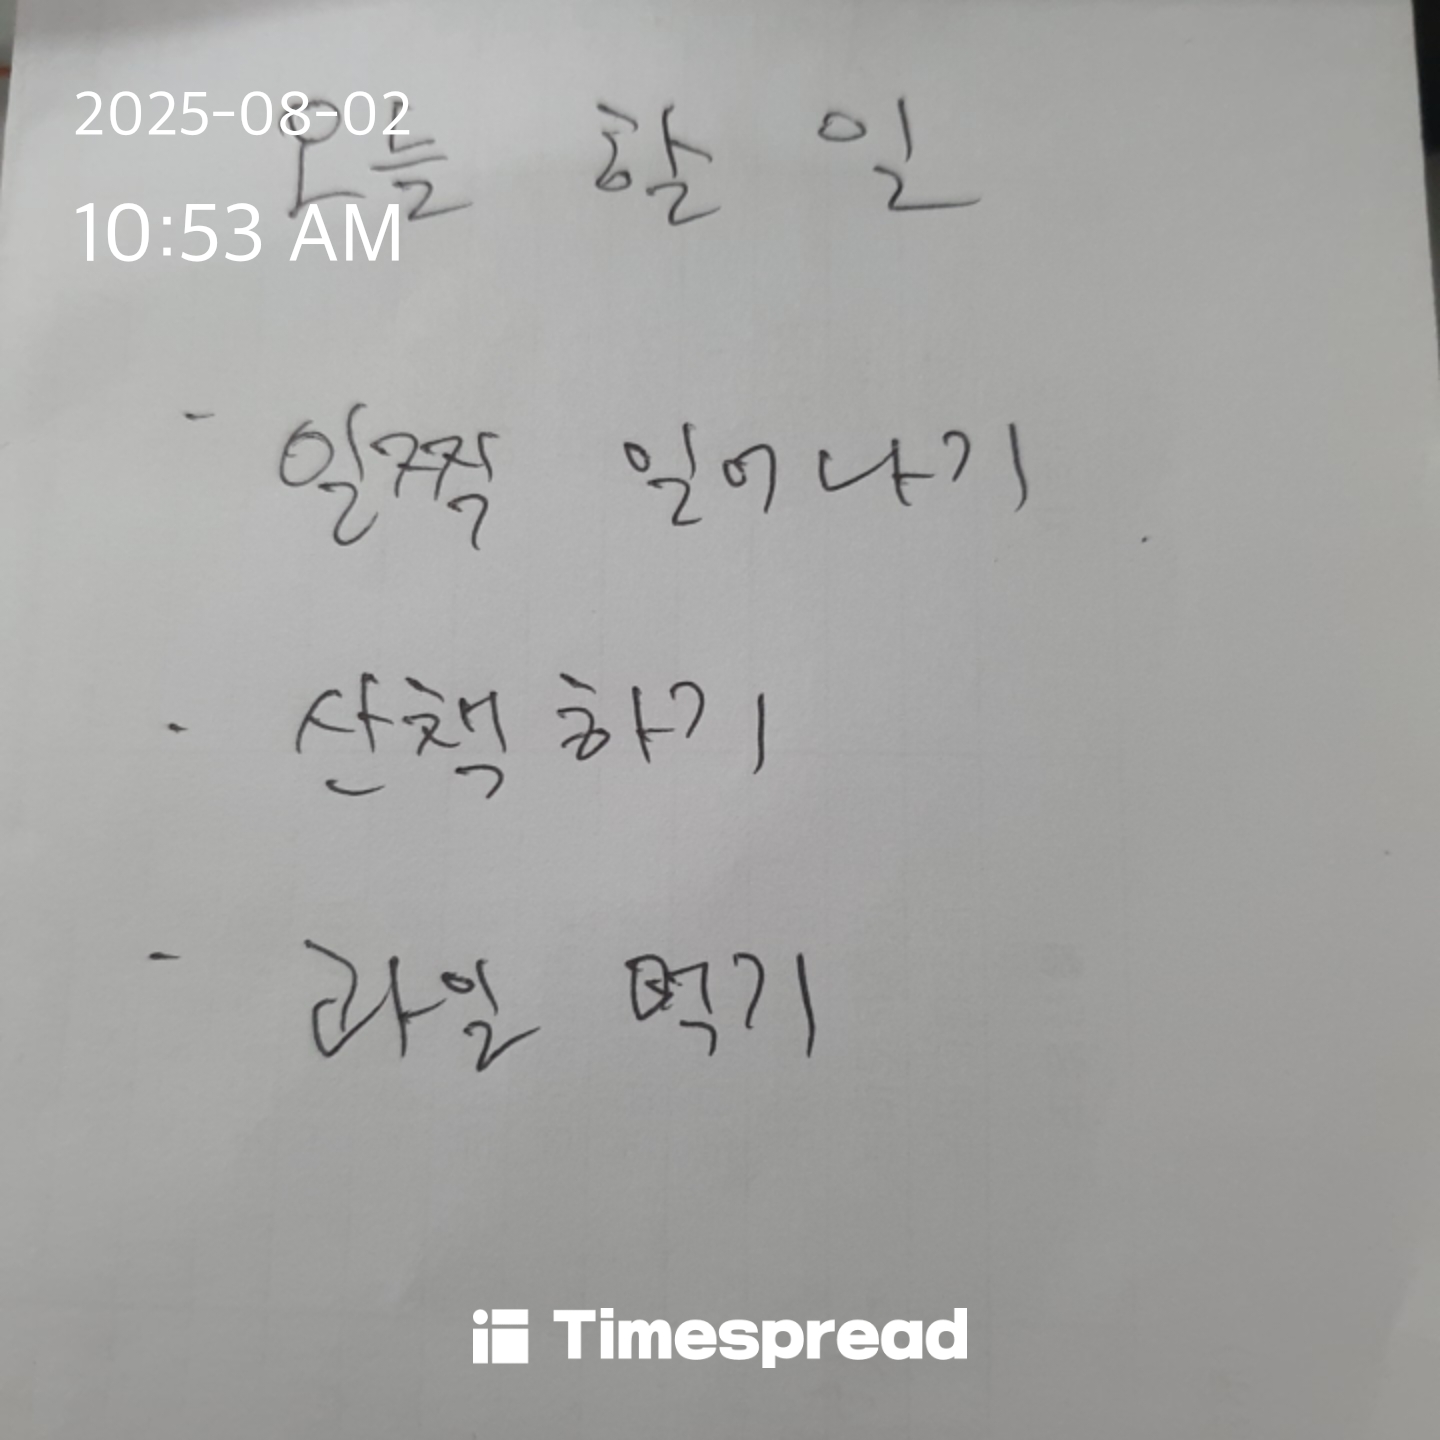 2025-08-02
오늘 할 일
10:53 AM
- 일찍 일어나기
- 산책하기
- 과일 먹기
Timespread